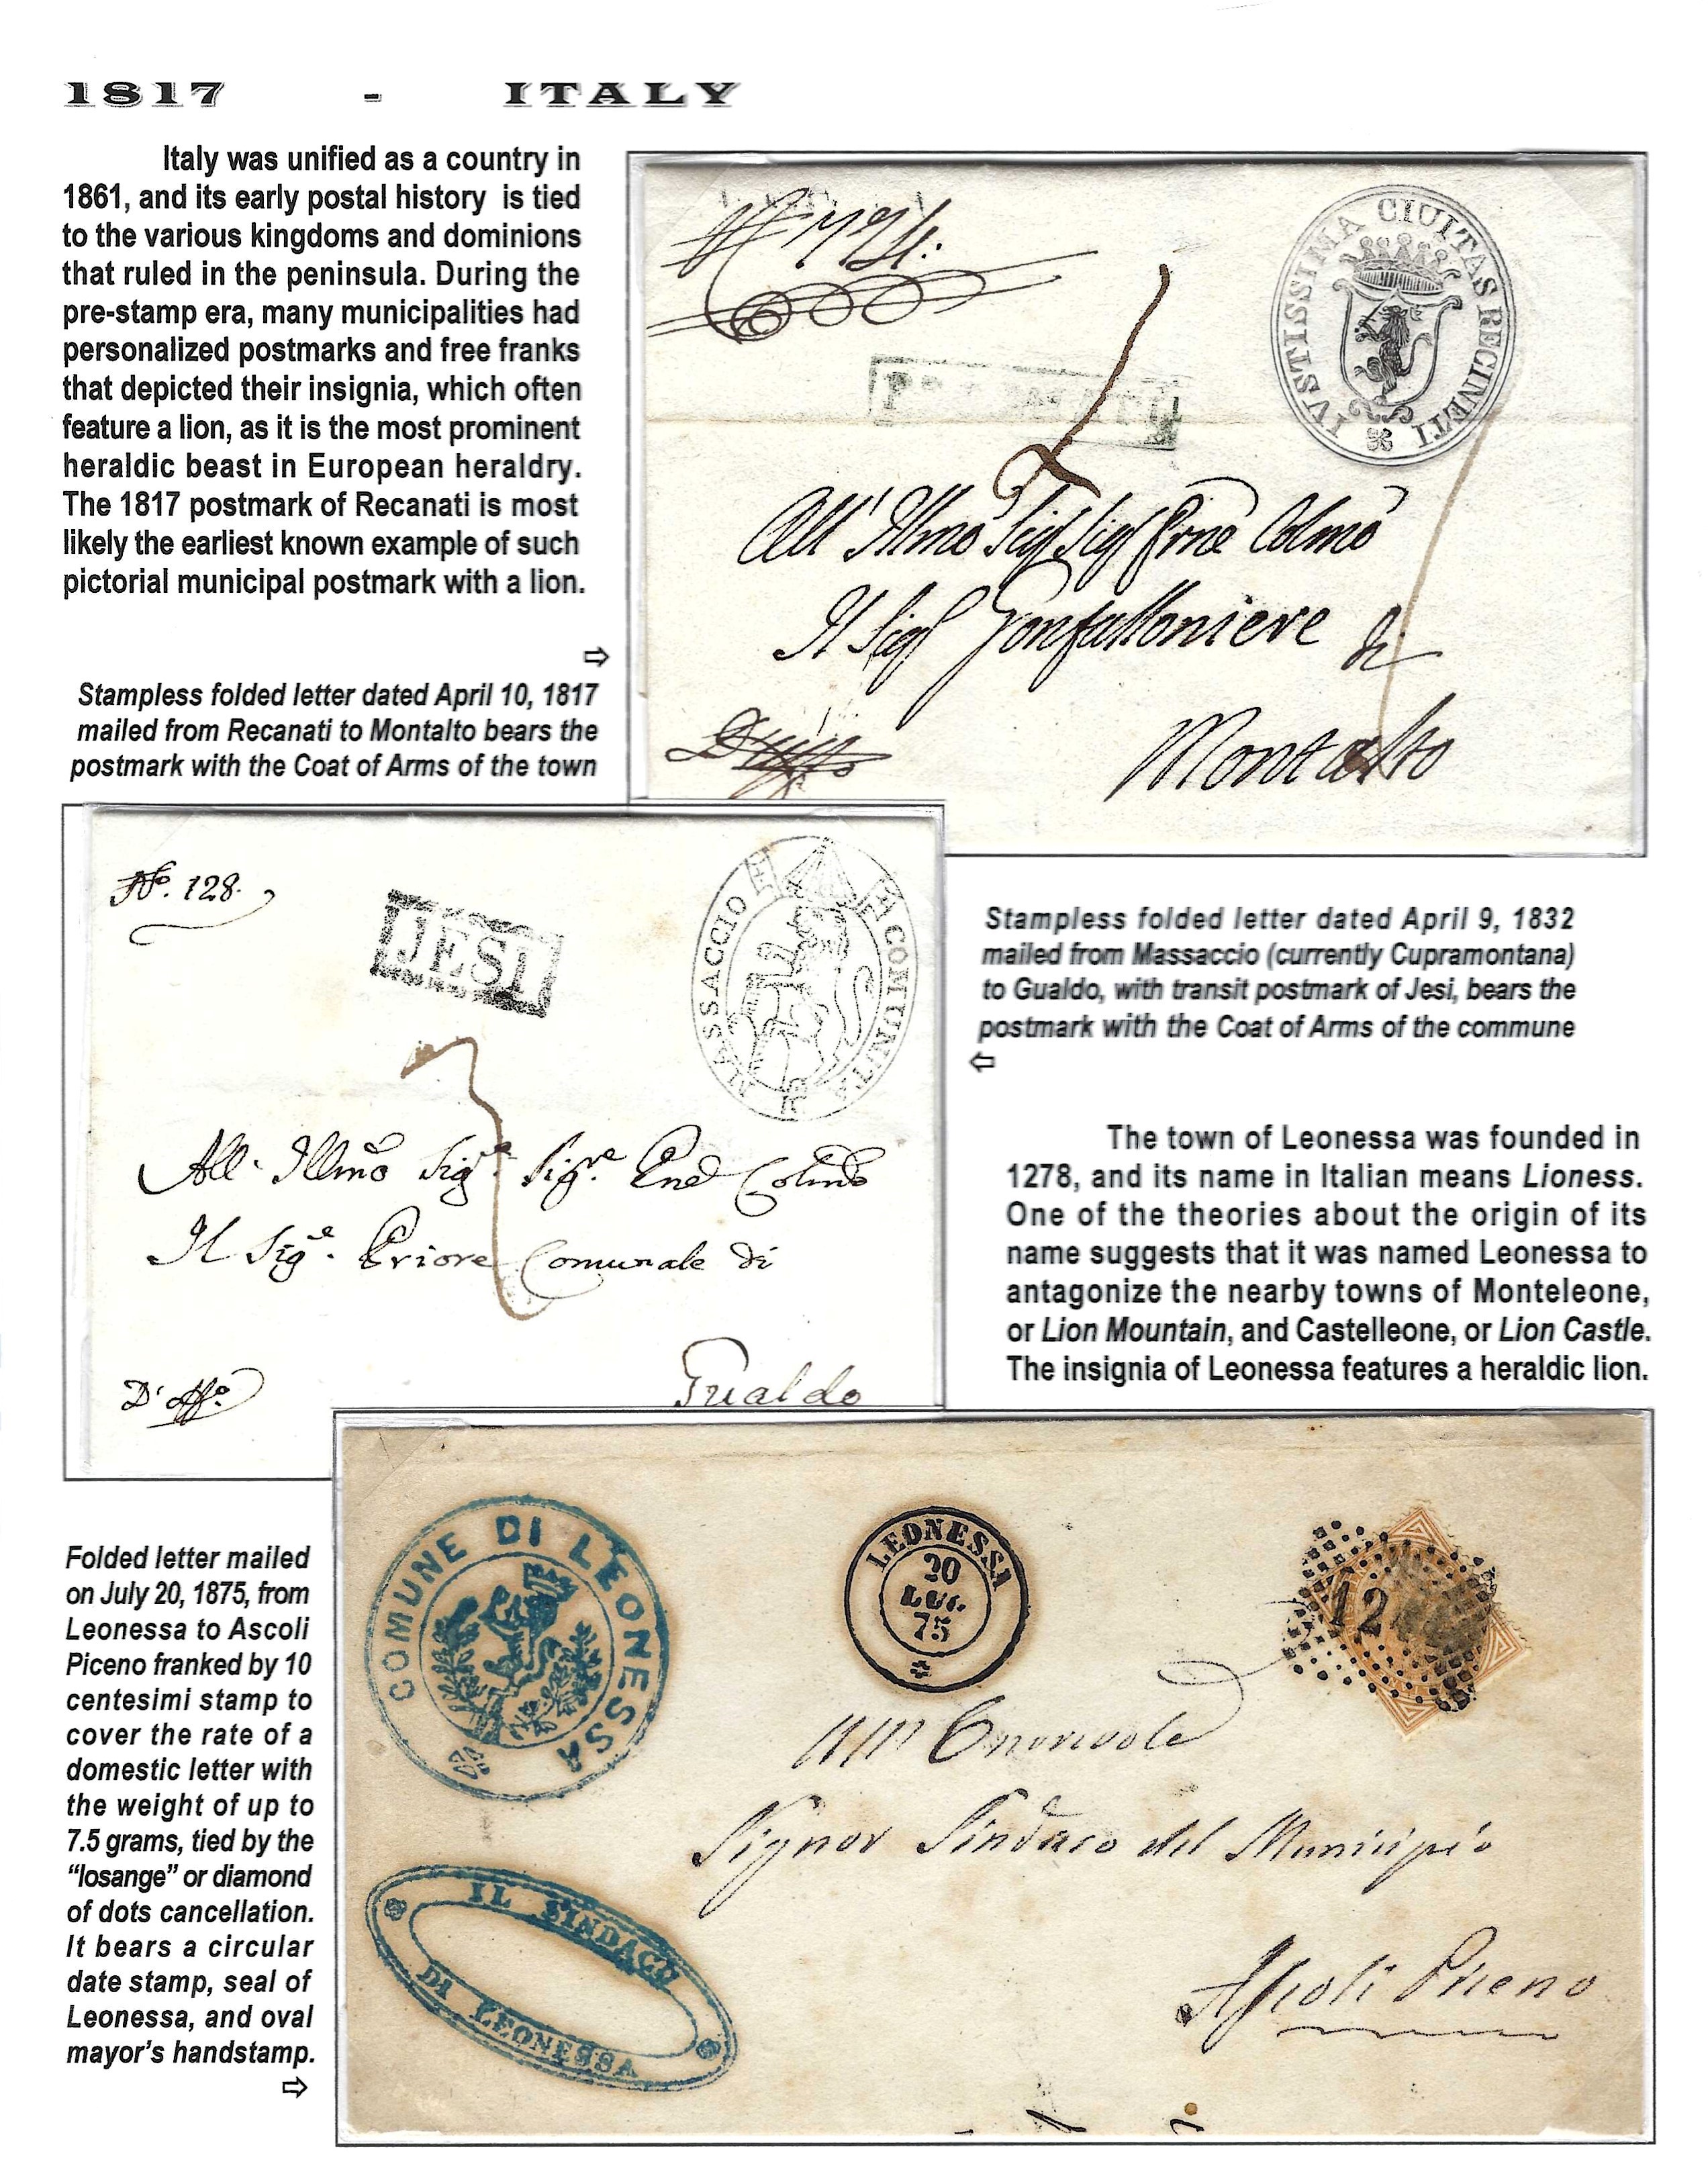 1817 - ITALY
Italy was unified as a country in
1861, and its early postal history is tied
to the various kingdoms and dominions
that ruled in the peninsula. During the
pre-stamp era, many municipalities had
personalized postmarks and free franks
that depicted their insignia, which often
feature a lion, as it is the most prominent
heraldic beast in European heraldry.
The 1817 postmark of Recanati is most
likely the earliest known example of such
pictorial municipal postmark with a lion.
⇨
Stampless folded letter dated April 10, 1817
mailed from Recanati to Montalto bears the
postmark with the Coat of Arms of the town
IVSTISSIMA CIUITAS RECINETI
All' Illmo Sig Sig Prne Colmo
Il Sig Gonfalloniere di
Montalto
No. 128.
JESI
LA COMUNITA DI MASSACCIO
All. Illmo Sigre. Sigre. Pne Colmo
Il Sigre. Priore Comunale di
Gualdo
D' offo.
Stampless folded letter dated April 9, 1832
mailed from Massaccio (currently Cupramontana)
to Gualdo, with transit postmark of Jesi, bears the
postmark with the Coat of Arms of the commune
⇦
The town of Leonessa was founded in
1278, and its name in Italian means Lioness.
One of the theories about the origin of its
name suggests that it was named Leonessa to
antagonize the nearby towns of Monteleone,
or Lion Mountain, and Castelleone, or Lion Castle.
The insignia of Leonessa features a heraldic lion.
Folded letter mailed
on July 20, 1875, from
Leonessa to Ascoli
Piceno franked by 10
centesimi stamp to
cover the rate of a
domestic letter with
the weight of up to
7.5 grams, tied by the
“losange” or diamond
of dots cancellation.
It bears a circular
date stamp, seal of
Leonessa, and oval
mayor's handstamp.
⇨
COMUNE DI LEONESSA
LEONESSA
20
LUG.
75
12
All' Onorevole
Signor Sindaco del Municipio
Ascoli Piceno
IL SINDACO
DI LEONESSA